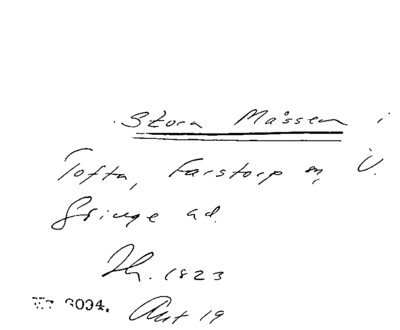 Stora Måssen i
Tofta, Farstorp sn, V.
Göinge hd.
Jh. 1823
No 6094. Ant 19